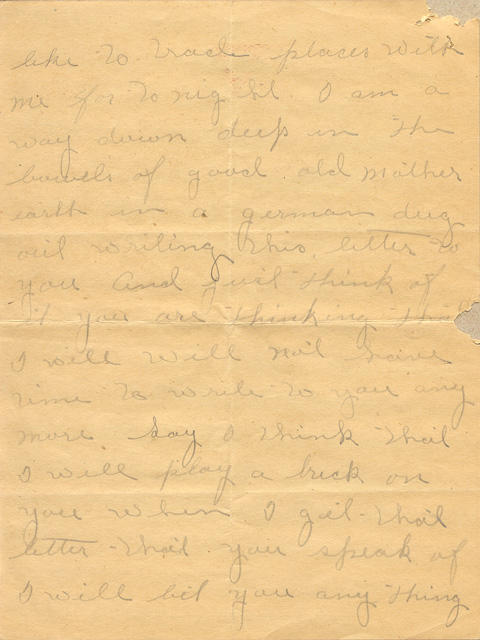 like to trade places with
me for to night. I am a
way down deep in the
bowels of good old mother
earth in a german dug
out writing this letter to
you and just think of
it you are thinking that
I will will not have
time to write to you any
more say I think that
I will play a trick on
you when I get that
letter that you speak of
I will bet you any thing